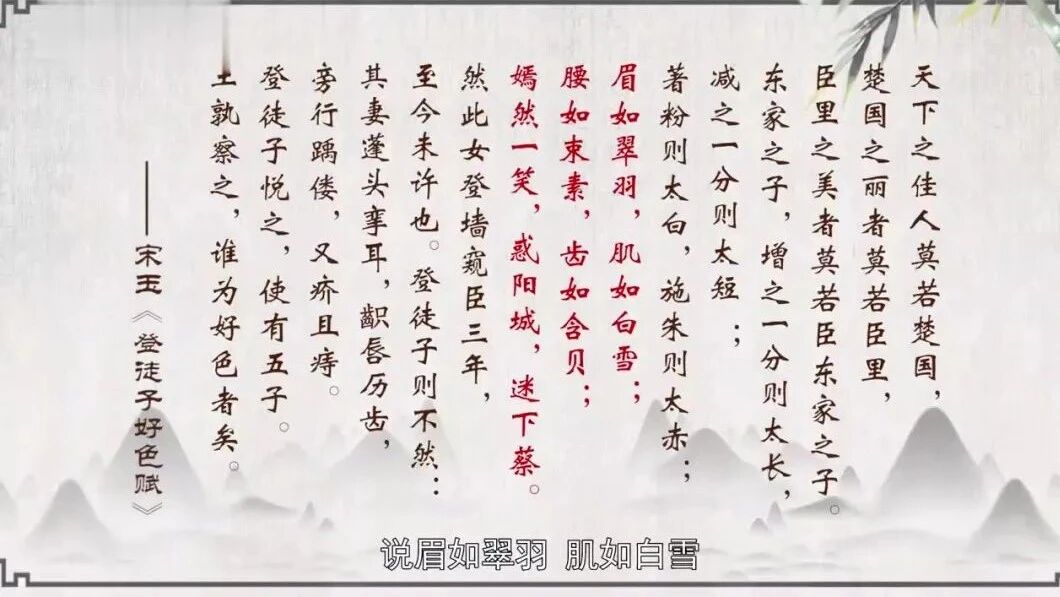 天下之佳人莫若楚国，
楚国之丽者莫若臣里，
臣里之美者莫若臣东家之子。
东家之子，增之一分则太长，
减之一分则太短；
著粉则太白，施朱则太赤；
眉如翠羽，肌如白雪；
腰如束素，齿如含贝；
嫣然一笑，惑阳城，迷下蔡。
然此女登墙窥臣三年，
至今未许也。登徒子则不然：
其妻蓬头挛耳，齞唇历齿，
旁行踽偻，又疥且痔。
登徒子悦之，使有五子。
王孰察之，谁为好色者矣。
——宋玉《登徒子好色赋》
说眉如翠羽 肌如白雪